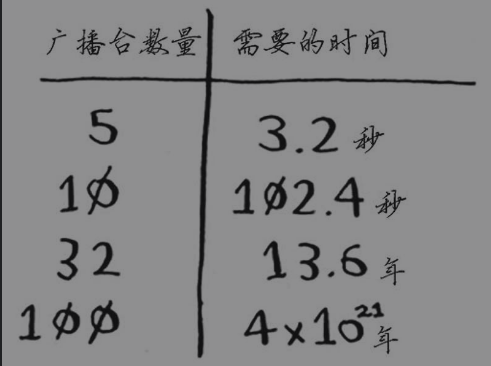 广播台数量 需要的时间
5 3.2秒
10 102.4秒
32 13.6年
100 4x10²¹年